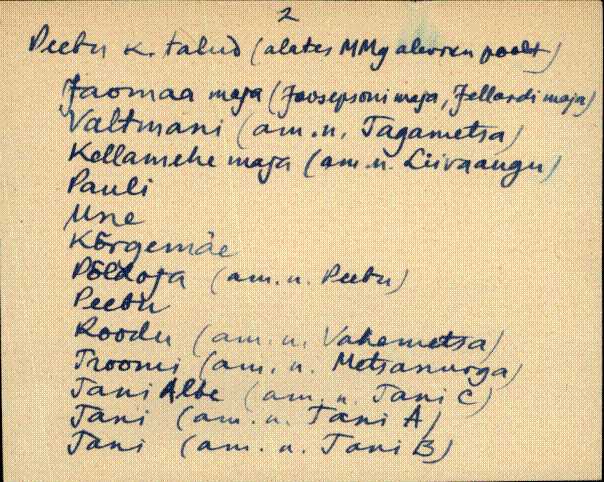 2
Peetu k. talud (alates MMg alevku poolt)
Jaomaa maja (Joosepsoni maja, Jellardi maja)
Valtmani (am. n. Tagametsa)
Kellamehe maja (am. n. Liivaaugu)
Pauli
Uue
Kõrgemäe
Põldoja (am. n. Peetu)
Peetu
Roodu (am. n. Vahemetsa)
Troomi (am. n. Metsanurga)
Tani Albe (am. n. Tani C)
Tani (am. n. Tani A)
Tani (am. n. Tani B)